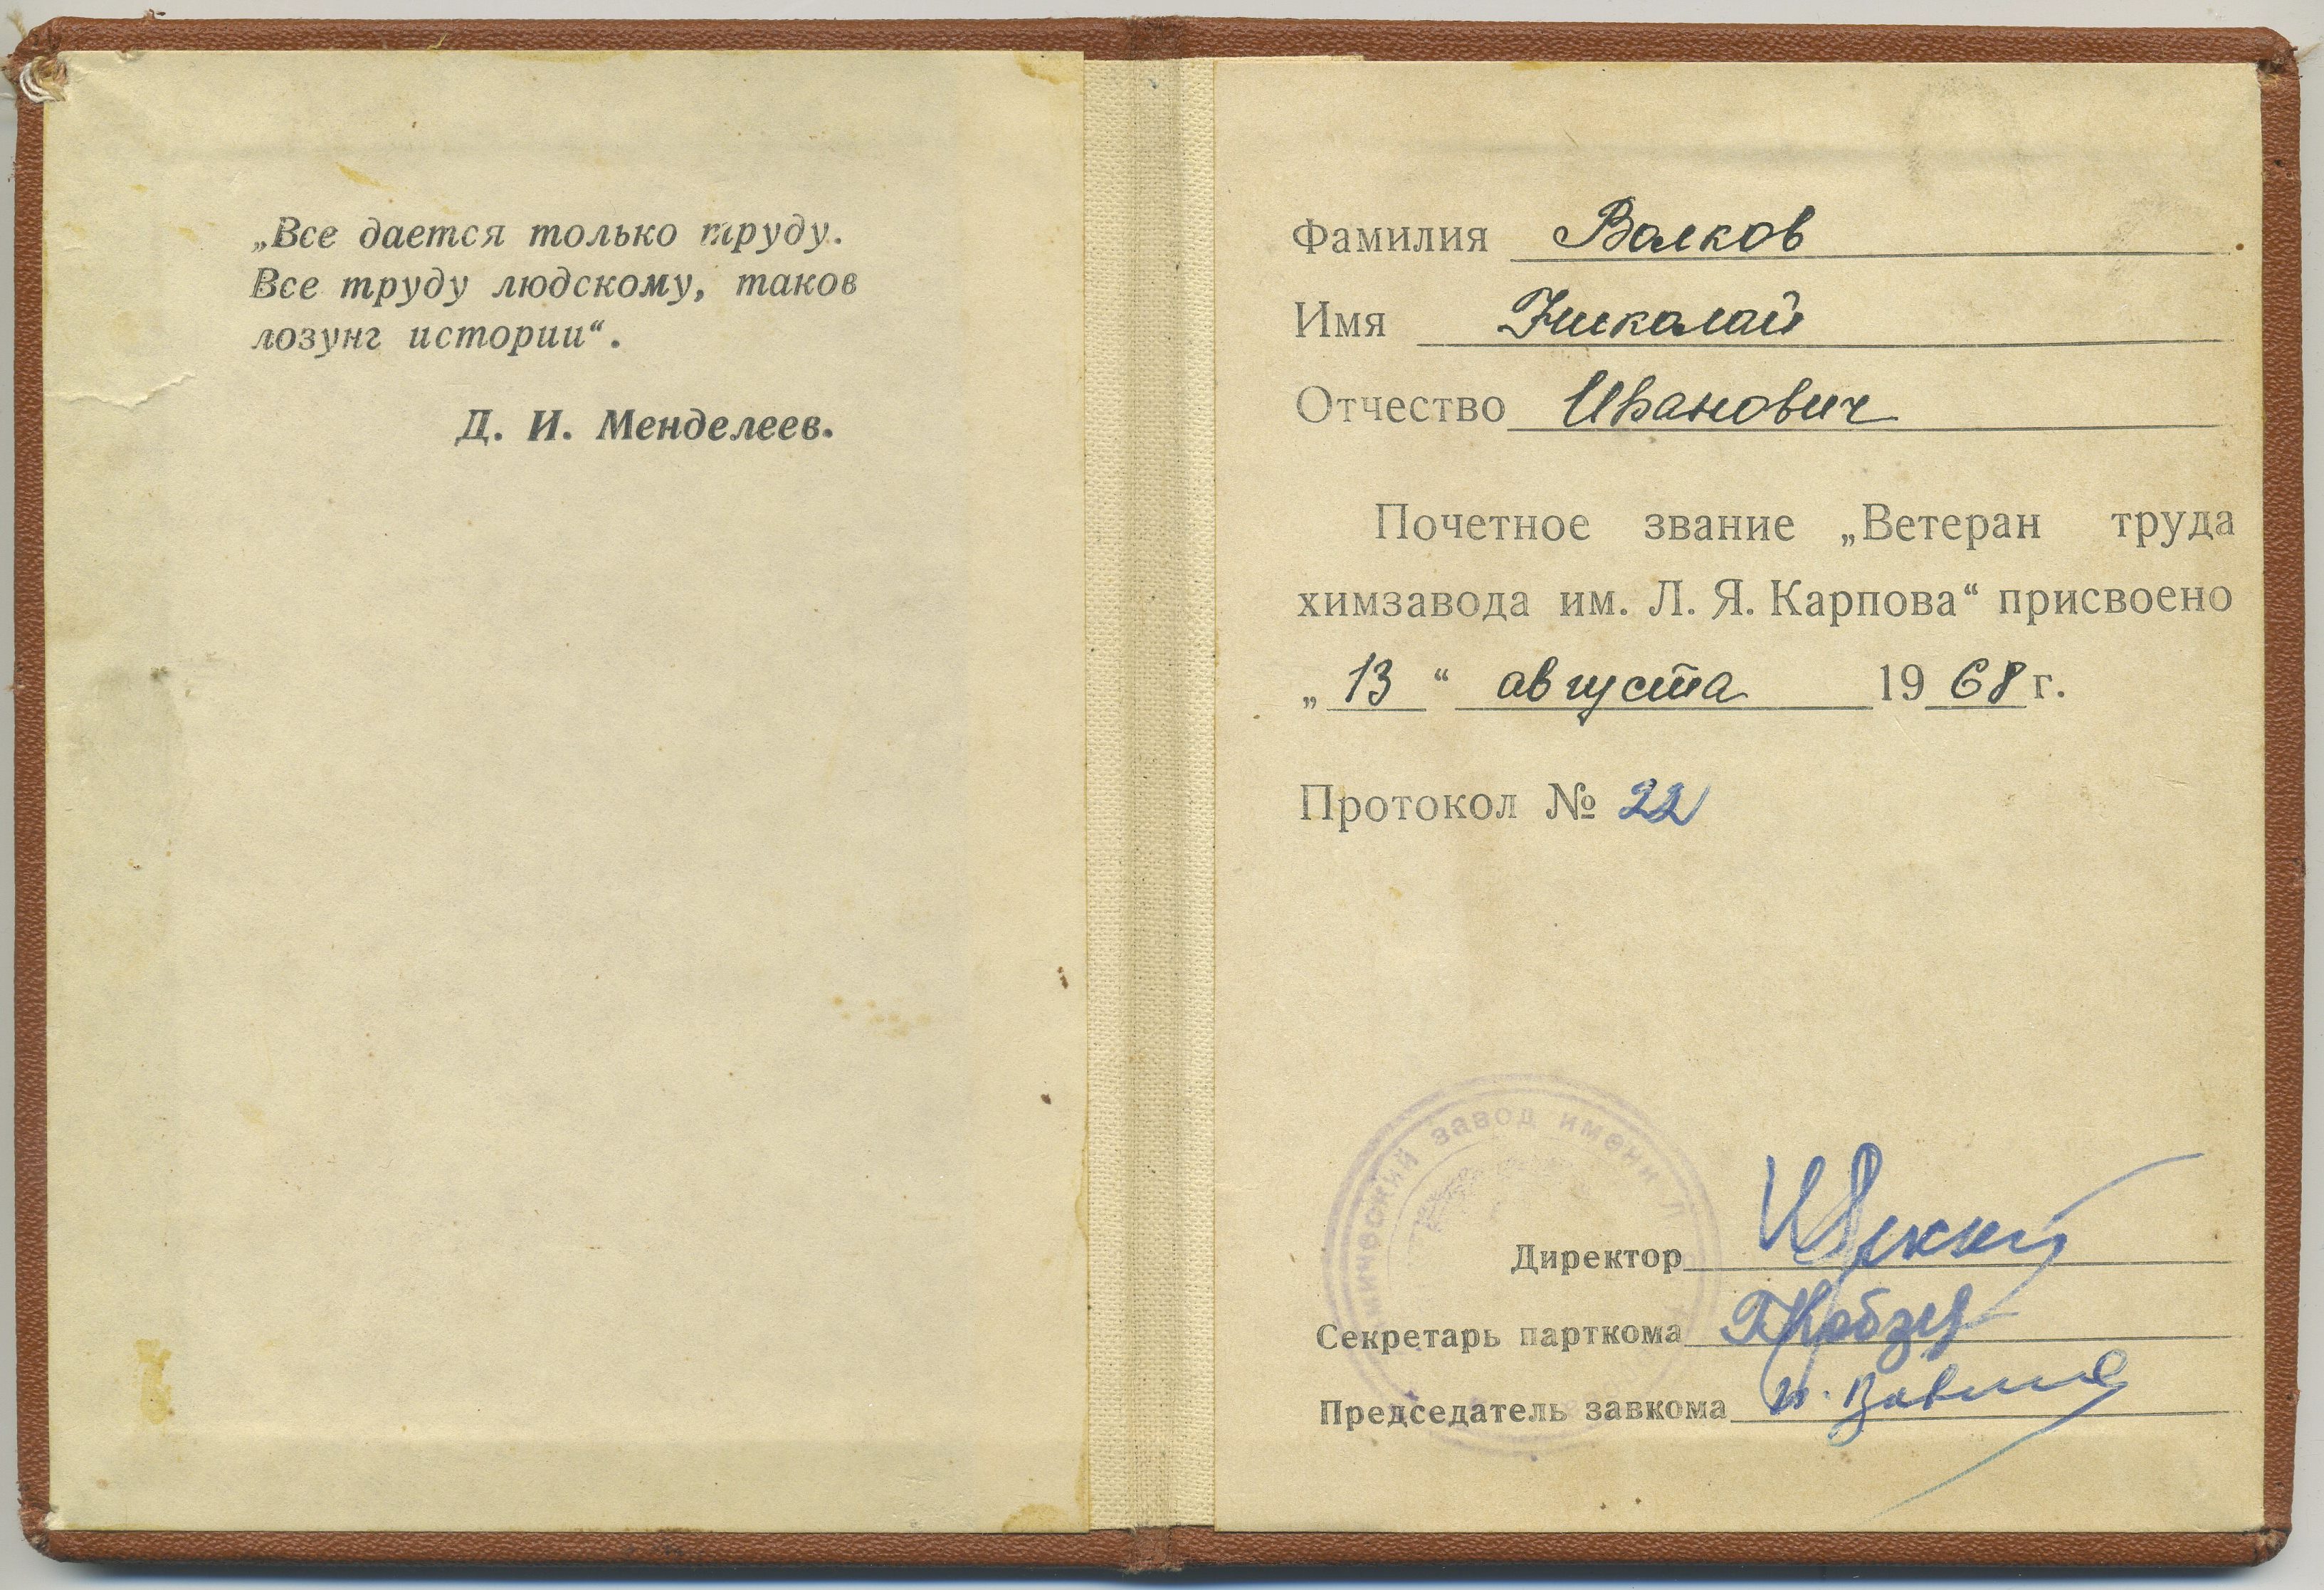 „Все дается только труду.
Все труду людскому, таков
лозунг истории“.
Д. И. Менделеев.
Фамилия Волков
Имя Николай
Отчество Иванович
Почетное звание „Ветеран труда
химзавода им. Л. Я. Карпова“ присвоено
„ 13 “ августа 19 68 г.
Протокол № 22
завод имени Л.
Директор
Секретарь парткома
Председатель завкома